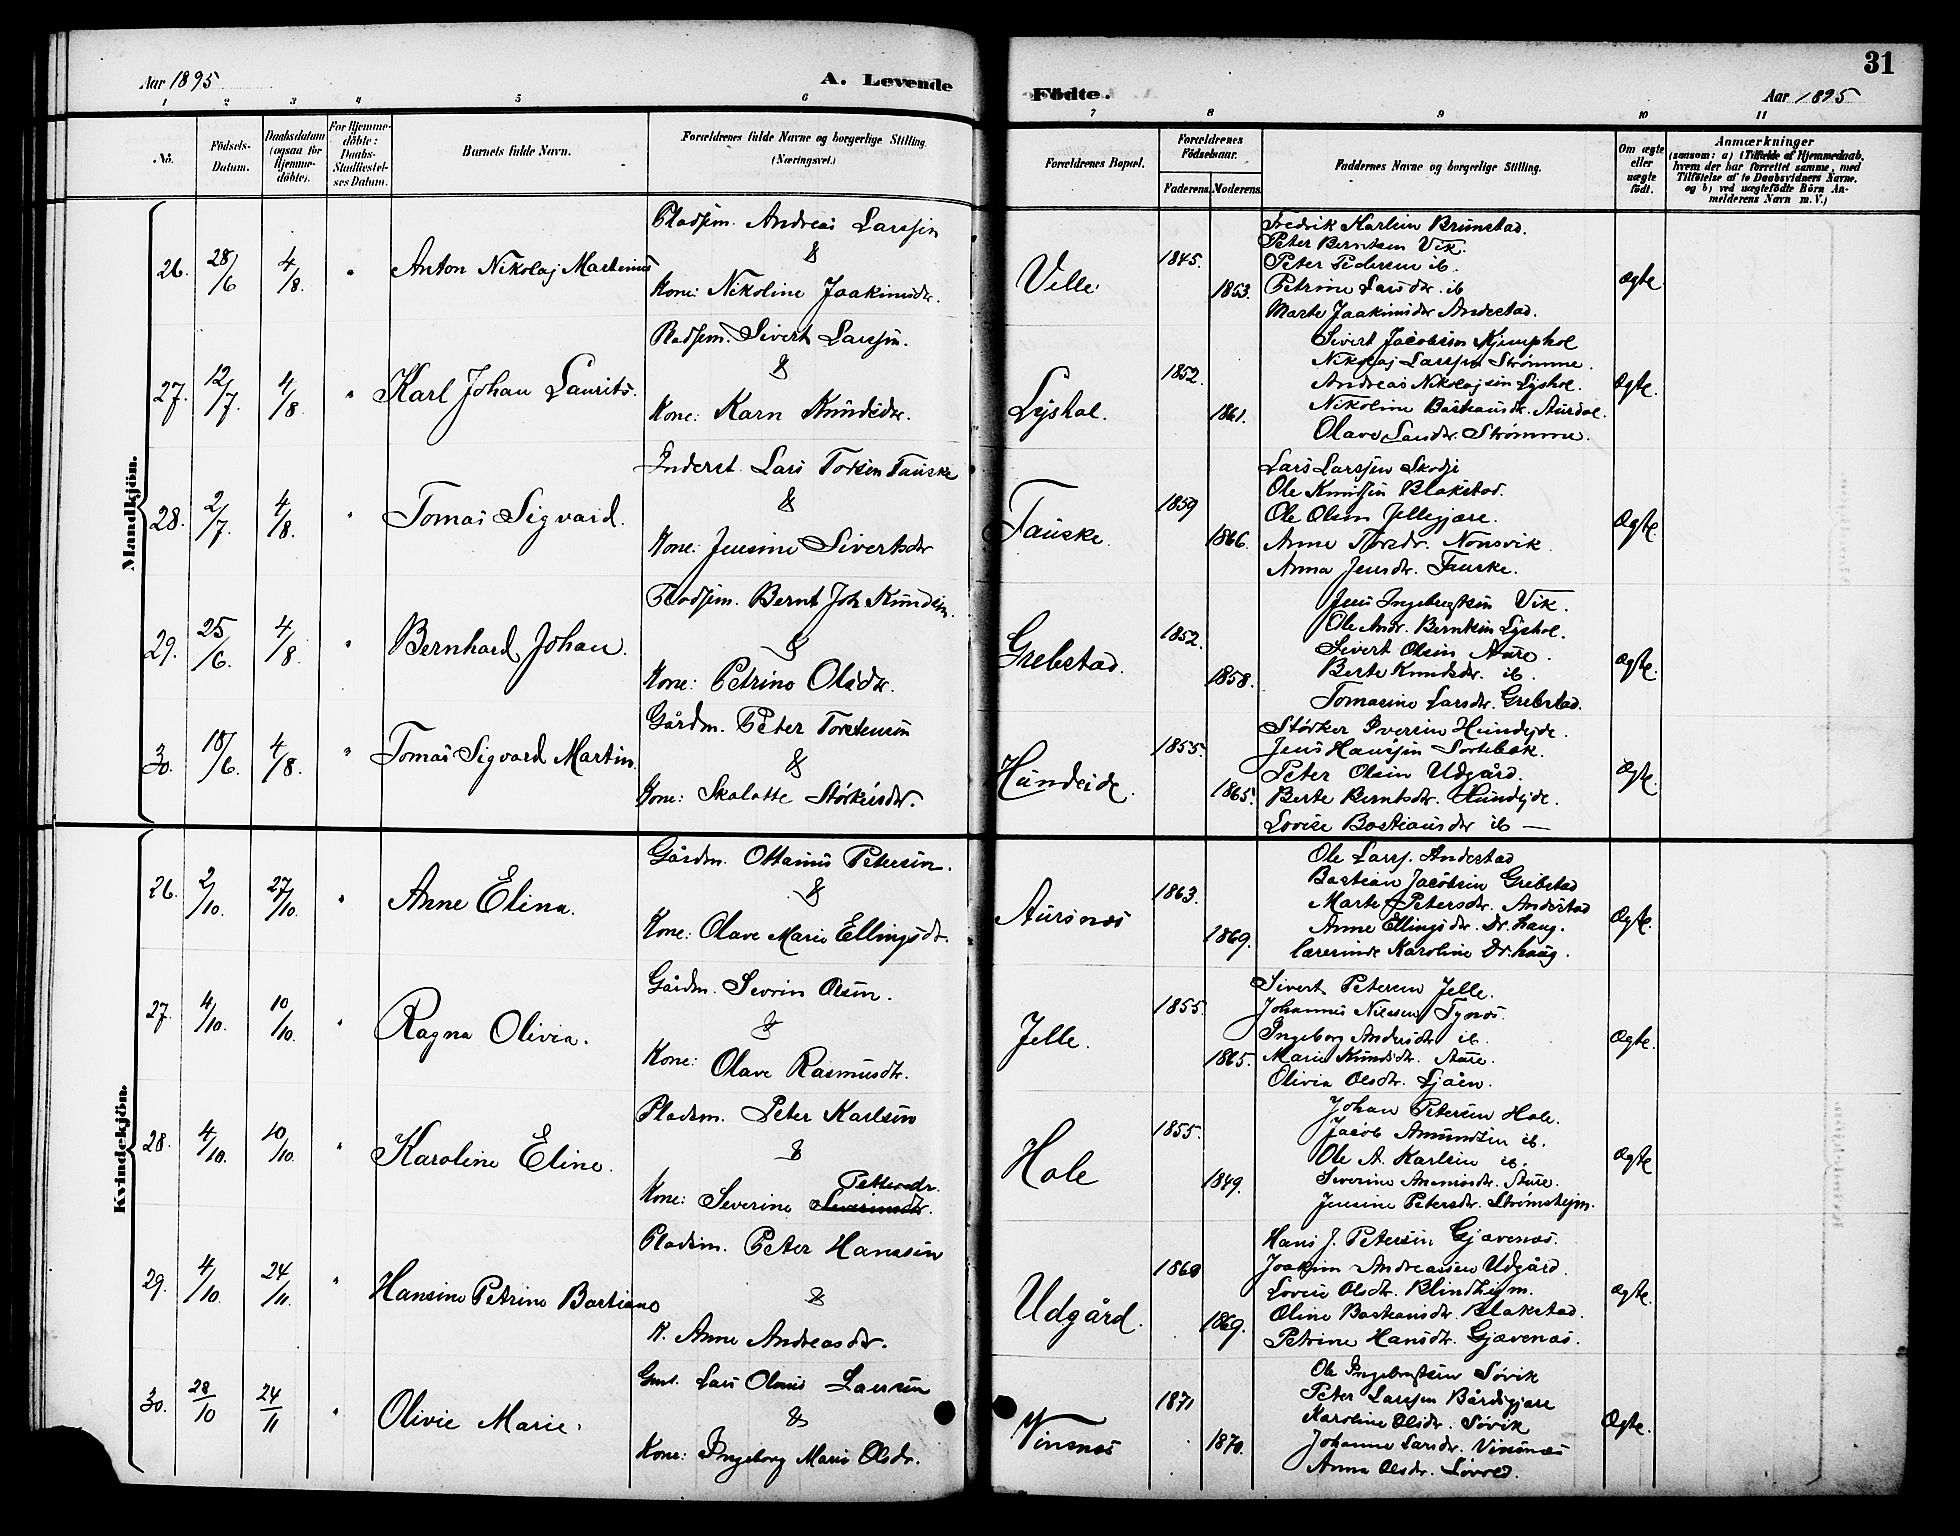 31
Aar 1895
A. Levende
Födte.
Aar 1895
1 2 3 4 5 6 7 8 9 10 11
No.
Födsels-Datum.
Daabsdatum (ogsaa for Hjemme-döbte).
For Hjemme-döbte: Daabs-Stadfæstel-ses Datum.
Barnets fulde Navn.
Forældrenes fulde Navne og borgerlige Stilling (Næringsvei.)
Forældrenes Bopæl.
Forældrenes Födselsaar.
Faderens. Moderens.
Faddernes Navne og borgerlige Stilling.
Om ægte eller uægte födt.
Anmærkninger
(saasom: a) i Tilfælde af Hjemmedaab,
hvem der har forrettet samme, med
Tilföielse af to Daabsvidners Navne,
og b) ved uægtefödte Börn An-
melderens Navn m. V.)
Mandkjön.
26. 28/6 4/8. " Anton Nikolaj Martinus
Pladsm. Andreas Larssen
&
Kone: Nikoline Jaakimsdr.
Velle. 1845. 1853.
Fredrik Karlsen Brunstad.
Peter Berntsen Vik.
Peter Pedersen ib.
Petrine Larsdr. ib
Marte Jaakimsdr Andestad.
ægte
27. 12/7. 4/8 " Karl Johan Laurits.
Pladsm. Sivert Larssen.
&
Kone: Karn Knudsdr.
Lyshol. 1852. 1861.
Sivert Jacobsen Kjemphol
Nikolaj Larssen Strømme.
Andreas Nikolajsen Lyshol.
Nikoline Bastiansdr. Aurdal.
Olave Larsdr. Strømme.
Ægte.
28. 2/7. 4/8. " Tomas Sigvard.
Inderst. Lars Torsen Fauske
&
Kone: Jensine Sivertsdr
Fauske. 1859 1866.
Lars Larssen Skodje
Ole Knudsen Blakstad.
Ole Olsen Jellegjære.
Anne Torsdr. Nonsvik.
Anna Jensdr. Fauske.
Ægte.
29. 25/6. 4/8 " Bernhard Johan.
Pladsm. Bernt Joh Knudsen.
&
Kone: Petrine Olsdr.
Grebstad. 1852. 1858.
Jens Ingebregtsen Vik.
Ole Andr. Berntsen Lyshol.
Sivert Olsen Aure.
Berte Knudsdr. ib.
Tomasine Larsdr. Grebstad.
Ægte.
30. 18/6. 4/8. " Tomas Sigvard Martin.
Gårdm. Peter Torstensen
&
Kone: Skalotte Størkersdr.
Hundeide. 1855. 1865.
Størker Iversen Hundejde.
Jens Hanssen Sortebæk.
Peter Olsen Udgård.
Berte Berntsdr. Hundejde.
Lovise Bastiansdr ib —
Ægte.
Kvindekjön.
26. 2/10. 27/10. " Anne Elina.
Gårdm. Ottarius Petersen.
&
Kone: Olave Marie Ellingsdr.
Aursnæs 1863. 1869.
Ole Larss. Andestad
Bastian Jacobsen Grebstad
Marte Petersdr. Andestad
Anne Ellingsdr. Dr. haug.
lærerinde Karoline Dr. haug.
Ægte.
27. 4/10. 10/10. " Ragna Olivia.
Gårdm. Sevrin Olsen.
&
Kone: Olave Rasmusdr.
Jelle. 1855. 1865.
Sivert Petersen Jelle.
Johannes Nilssen Tynæs.
Ingeborg Andersdr ib.
Marie Knudsdr. Aure.
Olivia Olsdr. Sjåen.
Ægte.
28. 4/10. 10/10. " Karoline Eline.
Pladsm. Peter Karlsen
&
Pettersdr.
Kone: Severine Severinsdr.
Hole 1855. 1849.
Johan Petersen Hole.
Jacob Amundsen ib.
Ole A. Karlsen ib.
Severine Aasmusdr. Aure.
Jensine Petersdr. Strømshejm.
Ægte
29. 4/10. 24/11. " Hansine Petrine Bastiane
Pladsm. Peter Hanssen
&
K. Anne Andreasdr.
Udgård. 1860 1869.
Hans J. Petersen Gjævenæs.
Joakim Andreassen Udgård.
Lovise Olsdr. Blindhejm.
Oline Bastiansdr. Blakstad.
Petrine Hansdr. Gjævenæs.
Ægte.
30. 28/10 24/11 " Olivie Marie.
Gmd. Lars Olaus Larssen
&
Kone: Ingeborg Marie Olsdr.
Vinsnæs 1871 1870.
Ole Ingebregtsen Søvik
Peter Larssen Bårdsgjære
Karoline Olsdr. Søvik
Johanne Larsdr. Vinsnæs
Anna Olsdr.
Ægte.